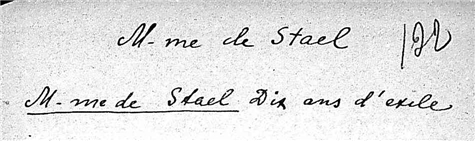 M-me de Stael
M-me de Stael Dix ans d'exile